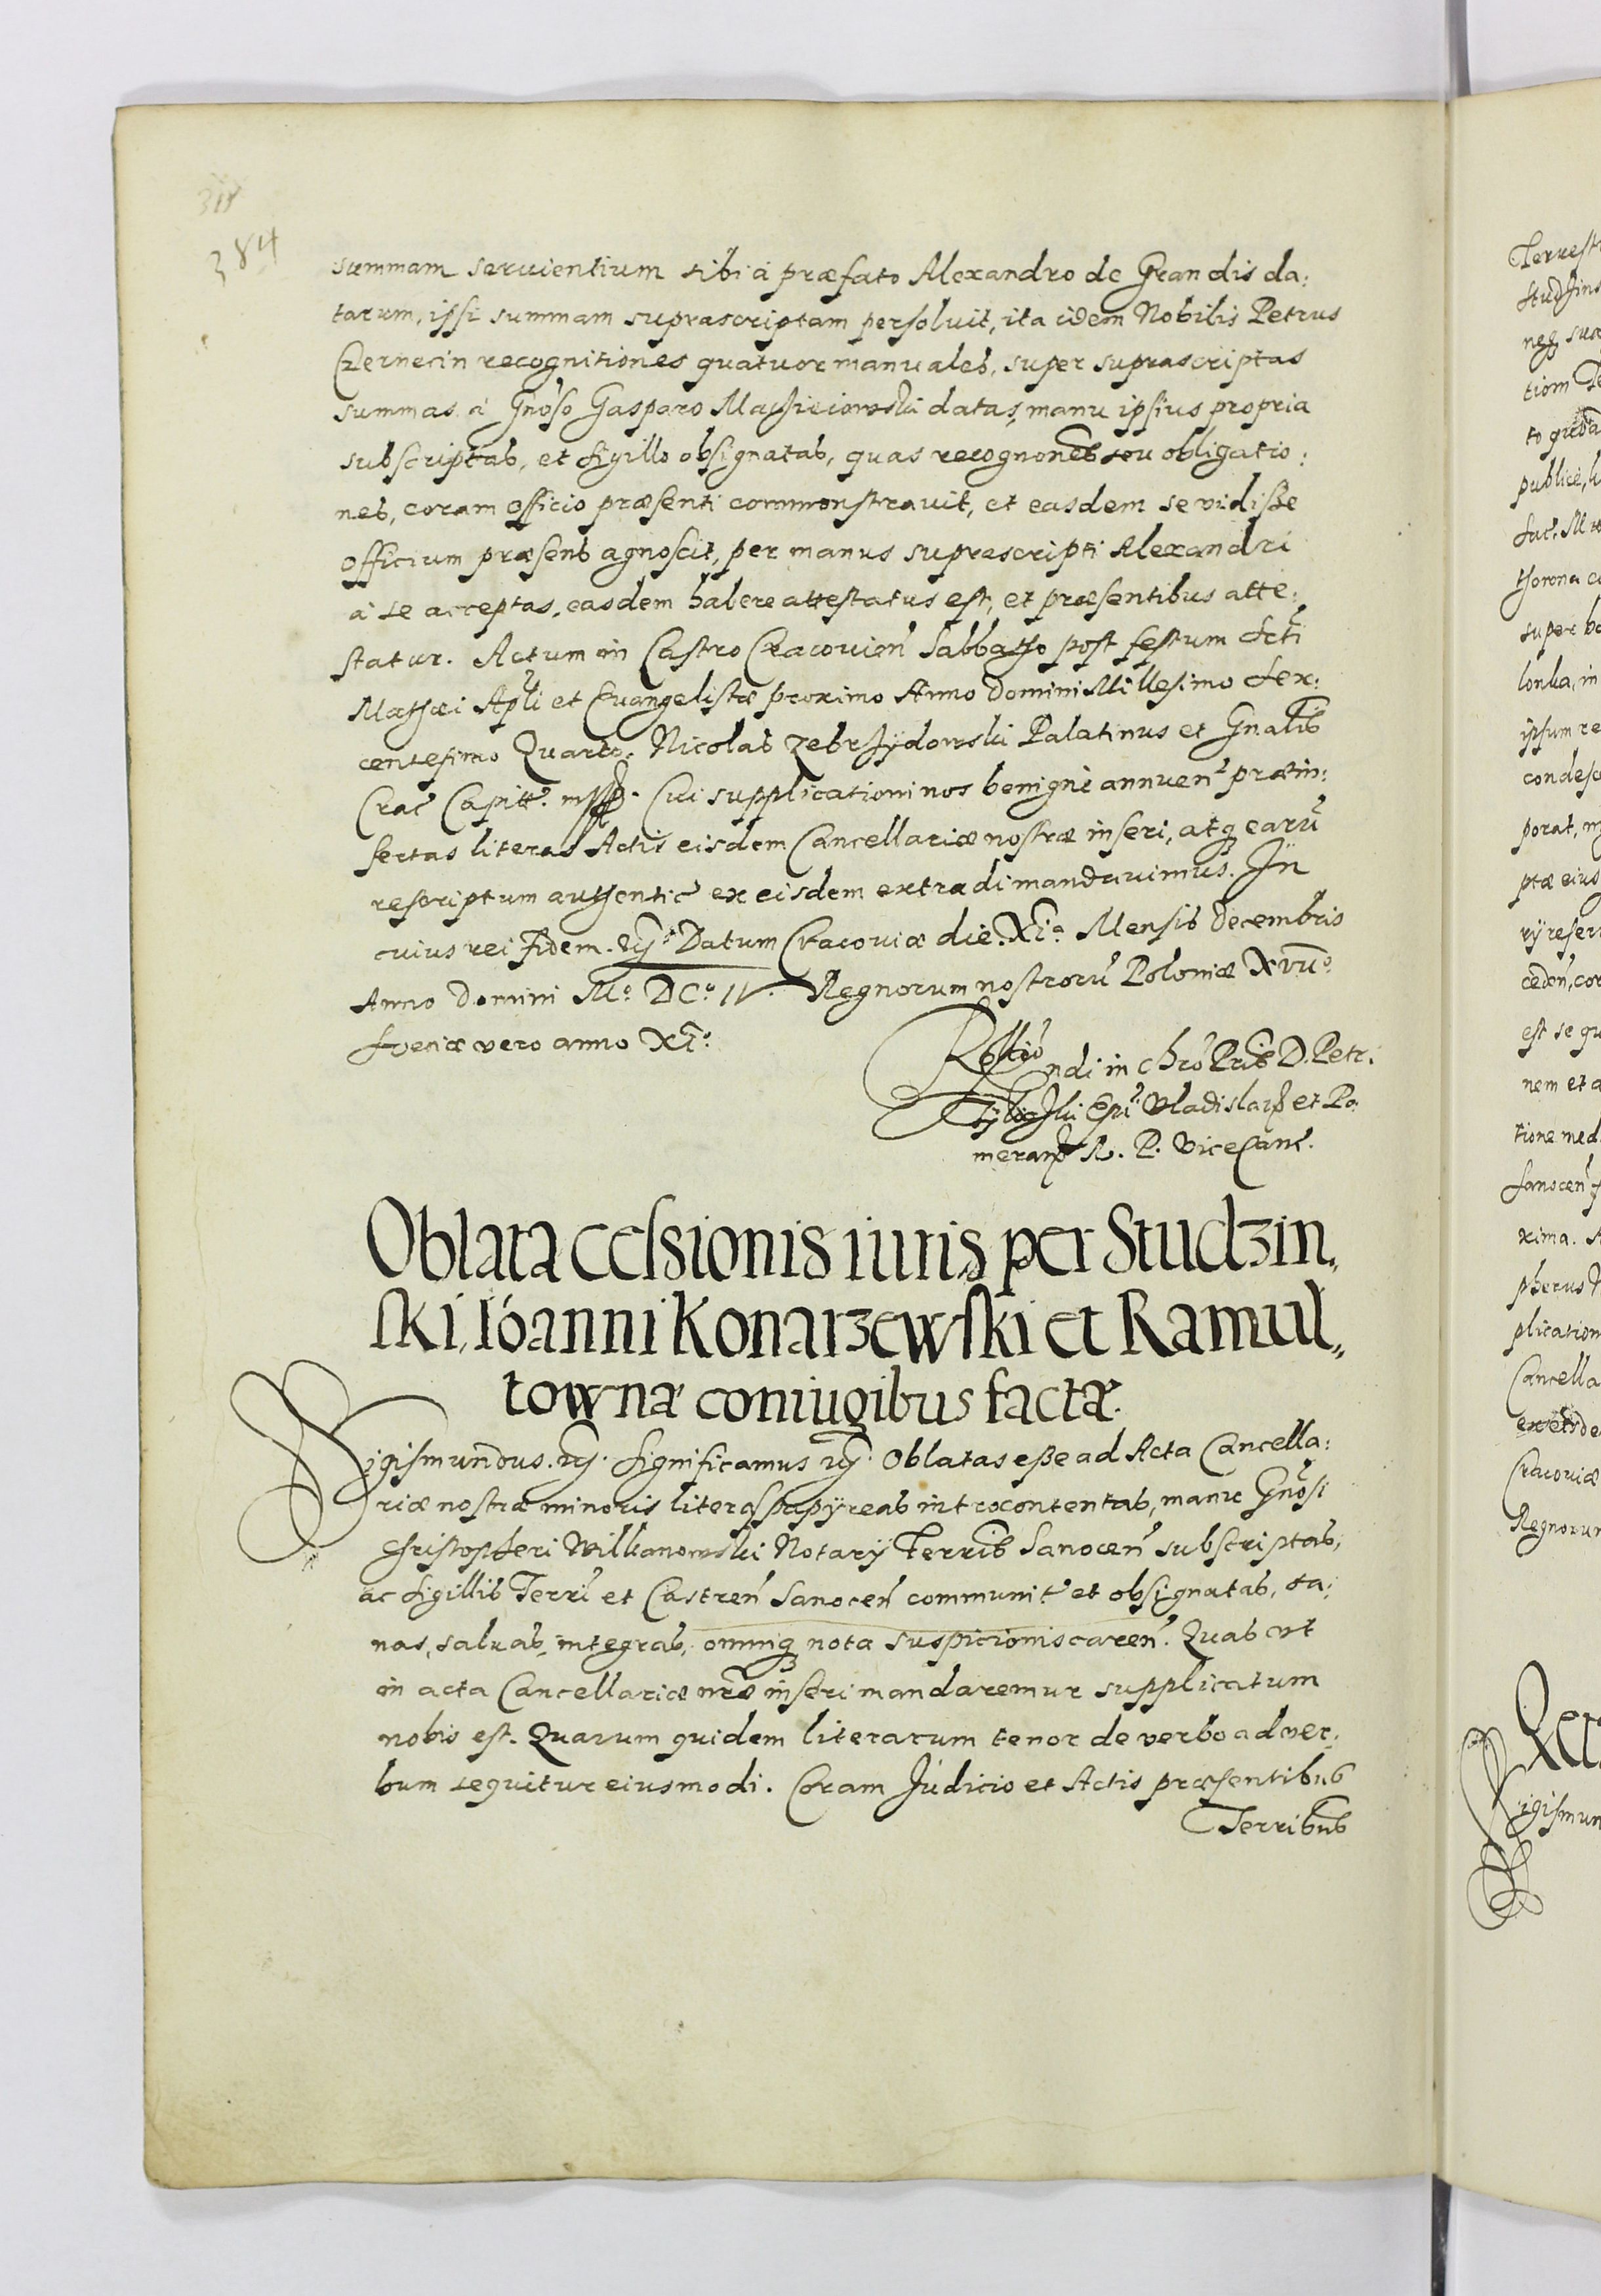 384
summam seruientium sibi à præfato Alexandro de Grandis da:
tarum, ipsi summam suprascriptam persoluit, ita idem Nobilis Petrus
Czernecin recognitiones quatuor manuales, super suprascriptas
summas à Gnoso Gasparo Macieiowski datas, manu ipsius propria
subscriptas, et sigillo obsignatas, quas recognones seu obligatio:
nes, coram officio præsenti commonstrauit, et easdem se vidisse
officium præsens agnoscit, per manus suprascripti Alexandri
à se acceptas, easdem habere attestatus est, et præsentibus atte:
statur. Actum in Castro Cracouien Sabbatho post festum Scti
Mathæi Apli et Euangelistæ proximo Anno Domini Millesimo Sex:
centesimo Quarto. Nicolas Zebrzydowski Palatinus et Gnalis
Crac Capitt. mpp. Cui supplicationi nos benigne annuen præin:
sertas literas Actis eisdem Cancellariæ nostræ inseri, atq earū
rescriptum authentic ex eisdem extradi mandauimus. In
cuius rei fidem. Datum Cracouiæ die. XIa. Mensis Decembris
Anno Domini Mo. DCo. IV. Regnorum nostrorū Poloniæ XVIIo.
Sueciæ vero anno XIo.
Rndi in Chro Pris D. Petri
Tylicki Epi Vladislai et Po
meran R. P. Vicecanc.
Oblata cessionis iuris per Studzin„
ski, Ioanni Konarzewski et Ramul„
townæ coniugibus factæ.
Sigismundus. Significamus Oblatas esse ad Acta Cancella:
riæ nostræ minoris literas papÿreas introcontentas, manu Gnosi
Christopheri Wilkanowski Notarÿ Terris Sanocen subscriptas,
ac sigillis Terri et Castren Sanocen communit et obsignatas, sa:
nas, saluas, integras, omniq nota suspicionis caren. Quas vt
in acta Cancellariæ nræ inseri mandaremur supplicatum
nobis est. Quarum quidem literarum tenor de verbo ad ver:
bum sequitur eiusmodi. Coram Judicio et Actis præsentibus
Terribus